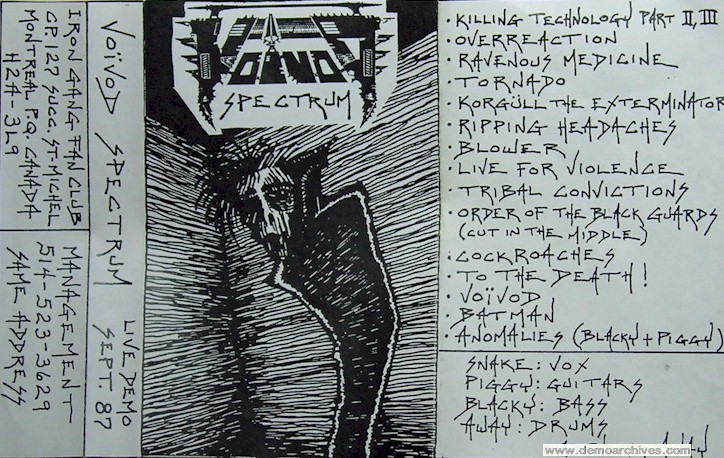 IRON GANG FAN CLUB
CP 127 SUCC. ST-MICHEL
MONTREAL P.Q. CANADA
H2A-3L9
MANAGEMENT
514-523-3629
SAME ADDRESS
VOÏVOD SPECTRUM LIVE DEMO
SEPT. 87
VOÏVOD
SPECTRUM
• KILLING TECHNOLOGY PART II, III
• OVERREACTION
• RAVENOUS MEDICINE
• TORNADO
• KORGÜLL THE EXTERMINATOR
• RIPPING HEADACHES
• BLOWER
• LIVE FOR VIOLENCE
• TRIBAL CONVICTIONS
• ORDER OF THE BLACK GUARDS
(CUT IN THE MIDDLE)
• COCKROACHES
• TO THE DEATH!
• VOÏVOD
• BATMAN
• ANOMALIES (BLACKY + PIGGY)
SNAKE: VOX
PIGGY: GUITARS
BLACKY: BASS
AWAY: DRUMS
www.demoarchives.com